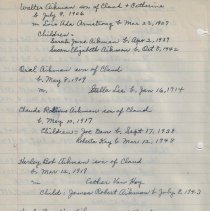 Walter Aikman son of Claud + Catherine
b July 9, 1906
m Lois Ada Armstrong b Mar 23, 1907
Children:
Sarah Jane Aikman b Apr 2, 1937
Susan Elizabeth Aikman b Oct 2, 1942
Oral Aikman son of Claud
b May 8, 1909
m Stella Lee b Jan 16, 1914
Claude Rollins Aikman son of Claud
b May 10, 1917
Children: Joe Dan b Sept 17, 1938
Roberta Kay b Mar 12, 1948
Harley Bob Aikman son of Claud
b Mar 12, 1917
m Esther Van Hoy
Child: James Robert Aikman b July 2, 1943